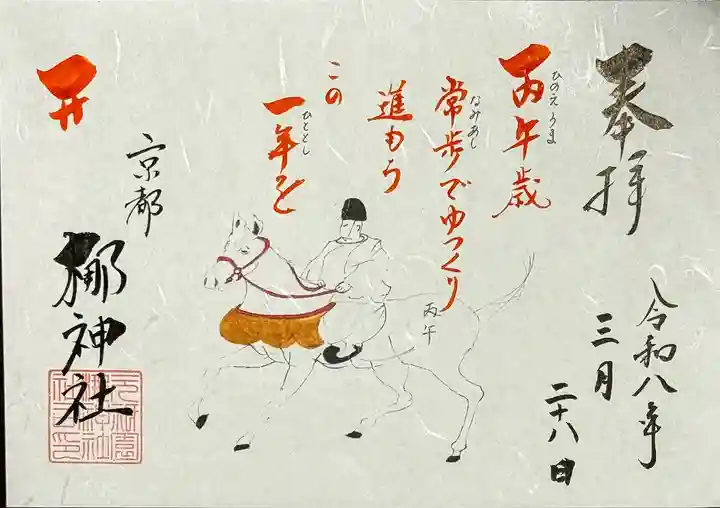 奉拝
令和八年
三月
二十八日
丙午歳
ひのえうま
常歩でゆっくり
なみあし
進もう
この
一年を
ひととし
丙午
京都
梛神社